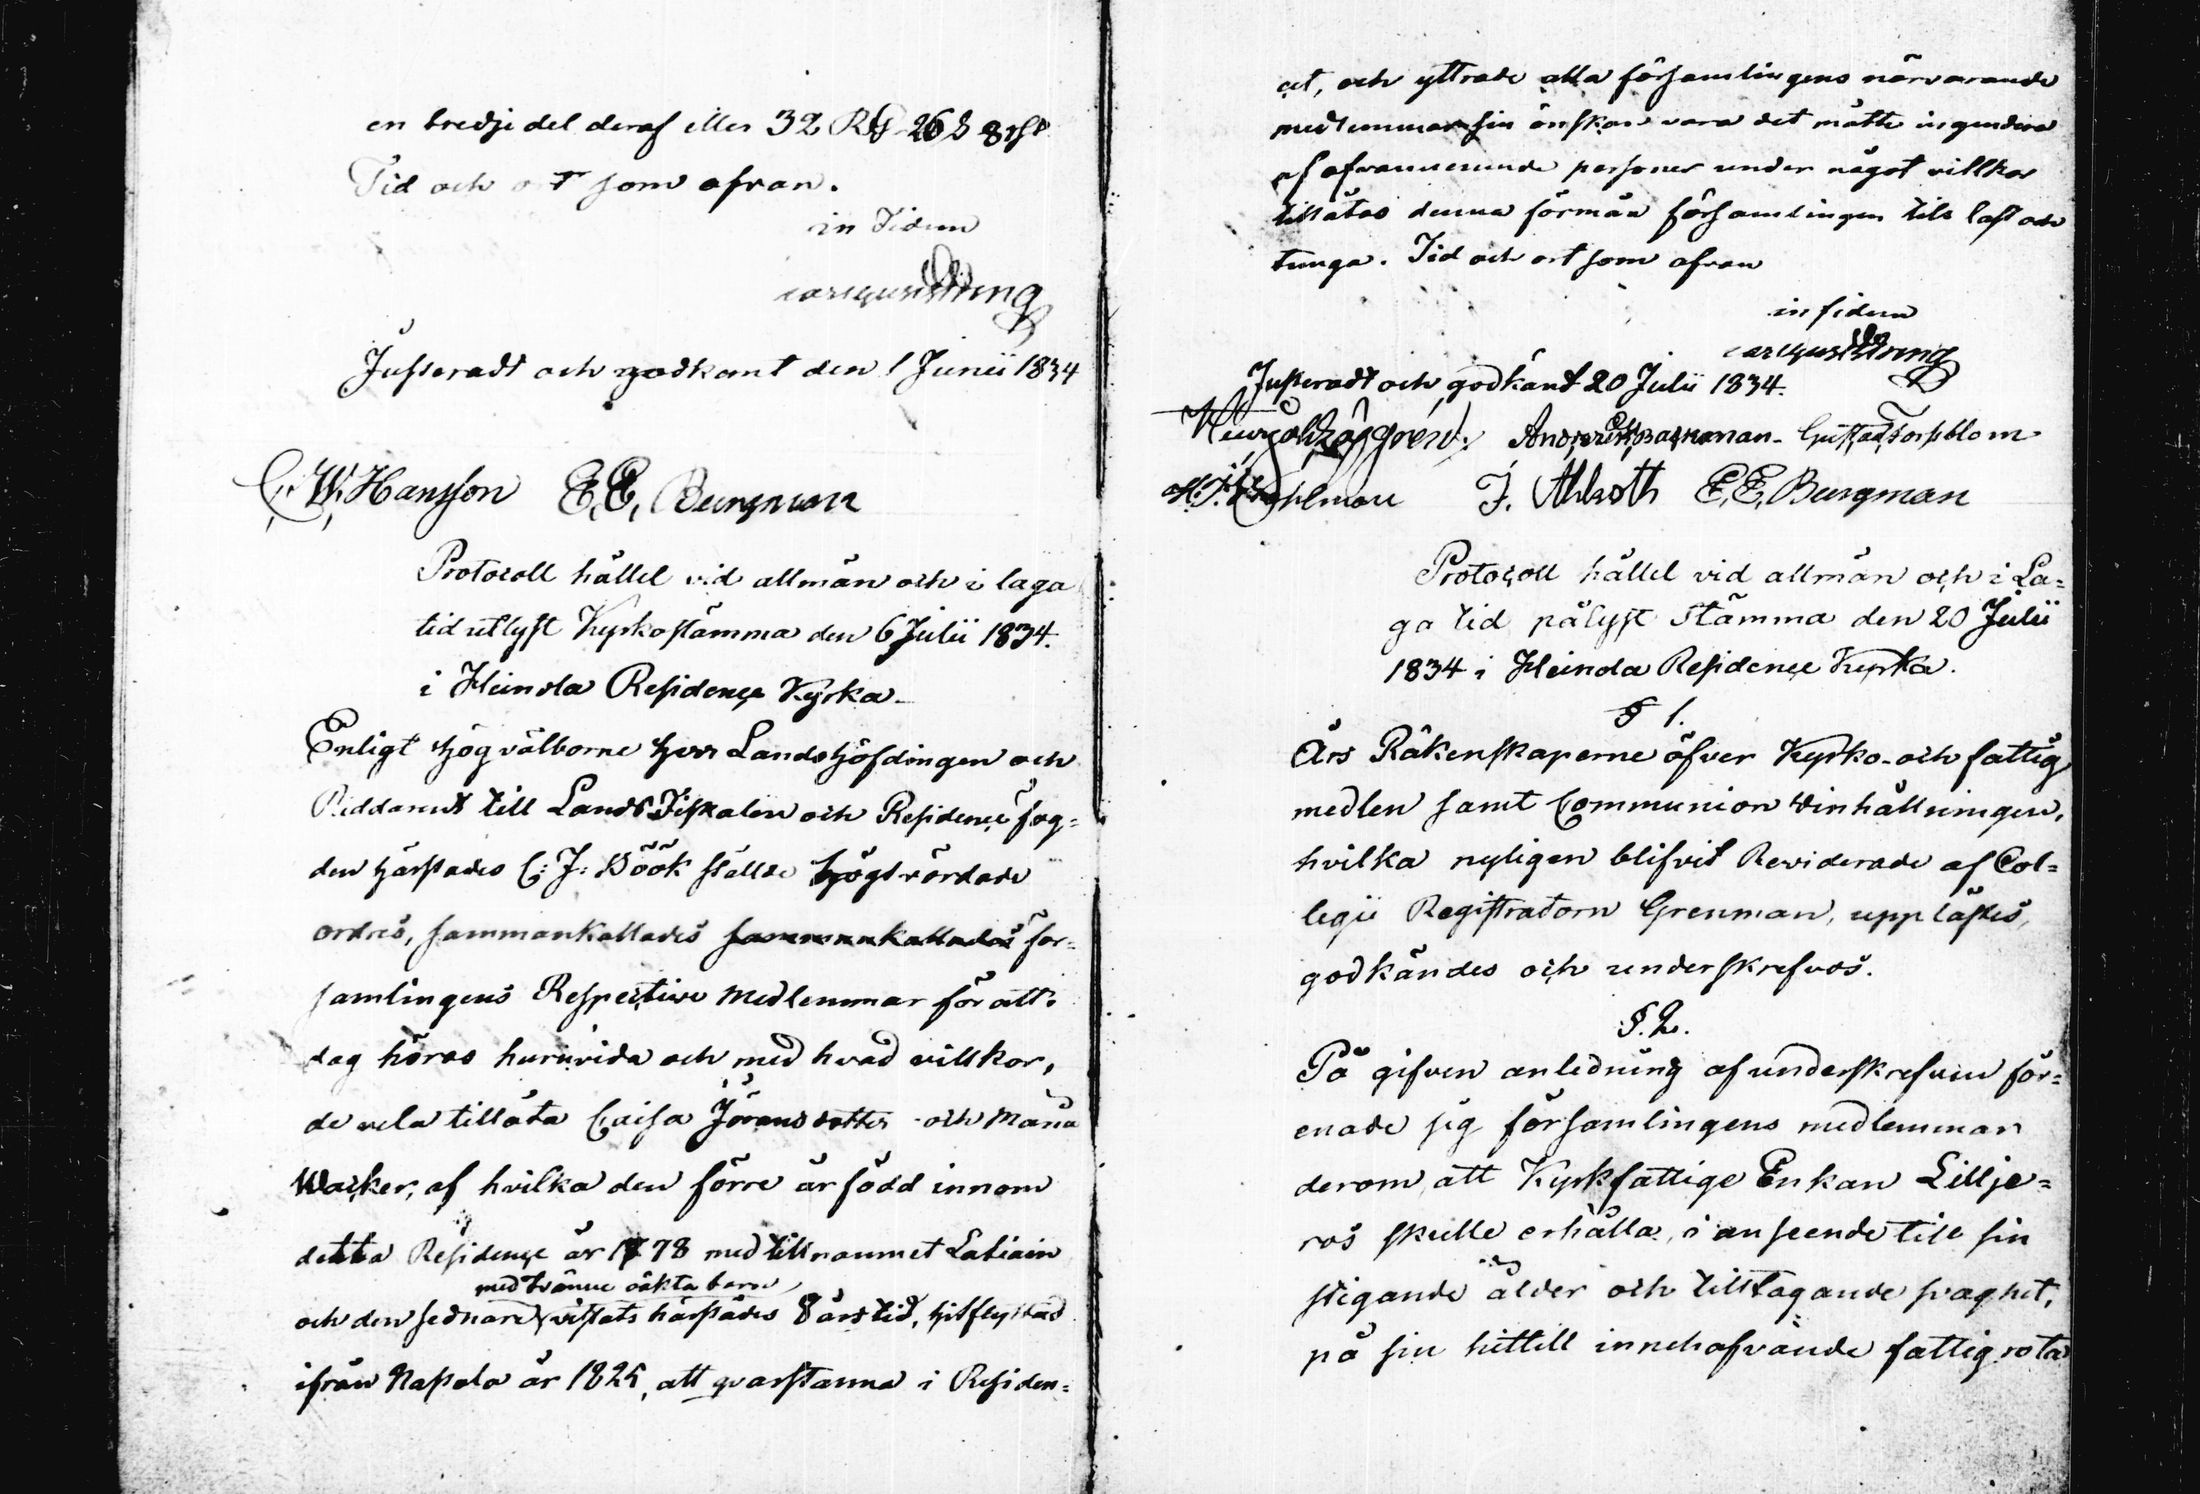 en tredje del deraf eller 32 Rd 26 s 8 rst
Tid och ort som ofvan.
in Fidem
Justeradt och godkänt den 1 Junii 1834
C. W. Hansson E. E. Bergman
Protocoll hållet vid allmän och i laga
tid utlyst Kyrkostämma den 6 Julii 1834.
i Heinola Residence Kyrka.
Enligt Högvälborne Herr Landshöfdingen och
Riddarens till Lands Fiskalen och Residence fog=
den härstädes C: J: Höök ställde högtvördade
ordres, sammankallades sammankallades för=
samlingens Respective Medlemmar för att i
dag höras huruvida och med hvad villkor,
de vela tillåta Caisa Jöransdotter och Maria
Wacker, af hvilka den förre är född innom
detta Residence år 1778 med tillnamnet Latiain
med tvänne oäkta barn
och den sednare vistats härstädes 8 års tid, hitflyttad
ifrån Napola år 1825, att qvarstanna i Residen=
cet, och yttrade alla församlingens närvarande
medlemmar sin önskan vara det måtte ingendera
af ofvannemnde personer under något villkor
tillåtas denna förmån församlingen till last och
tunga. Tid och ort som ofvan
in fidem
Justeradt och godkänt 20 Julii 1834.
Gustaf Forsblom
F. Ahlroth E. E. Bergman
Protocoll hållet vid allmän och i La=
ga tid pålyst Stämma den 20 Julii
1834 i Heinola Residence Kyrka.
§ 1.
Års Räkenskaperne öfver Kyrko- och fattig
medlen samt Communion Vinhållningen,
hvilka nyligen blifvit Reviderade af Col=
legii Registratorn Grenman, upplästes,
godkändes och underskrefvos.
§. 2.
På gifven anledning af underskrefven för=
enade sig församlingens medlemmar
derom att Kyrkfattige Enkan Lillje=
ros skulle erhålla, i anseende till sin
stigande ålder och tilltagande svaghet,
på sin hittill innehafvande fattig rota